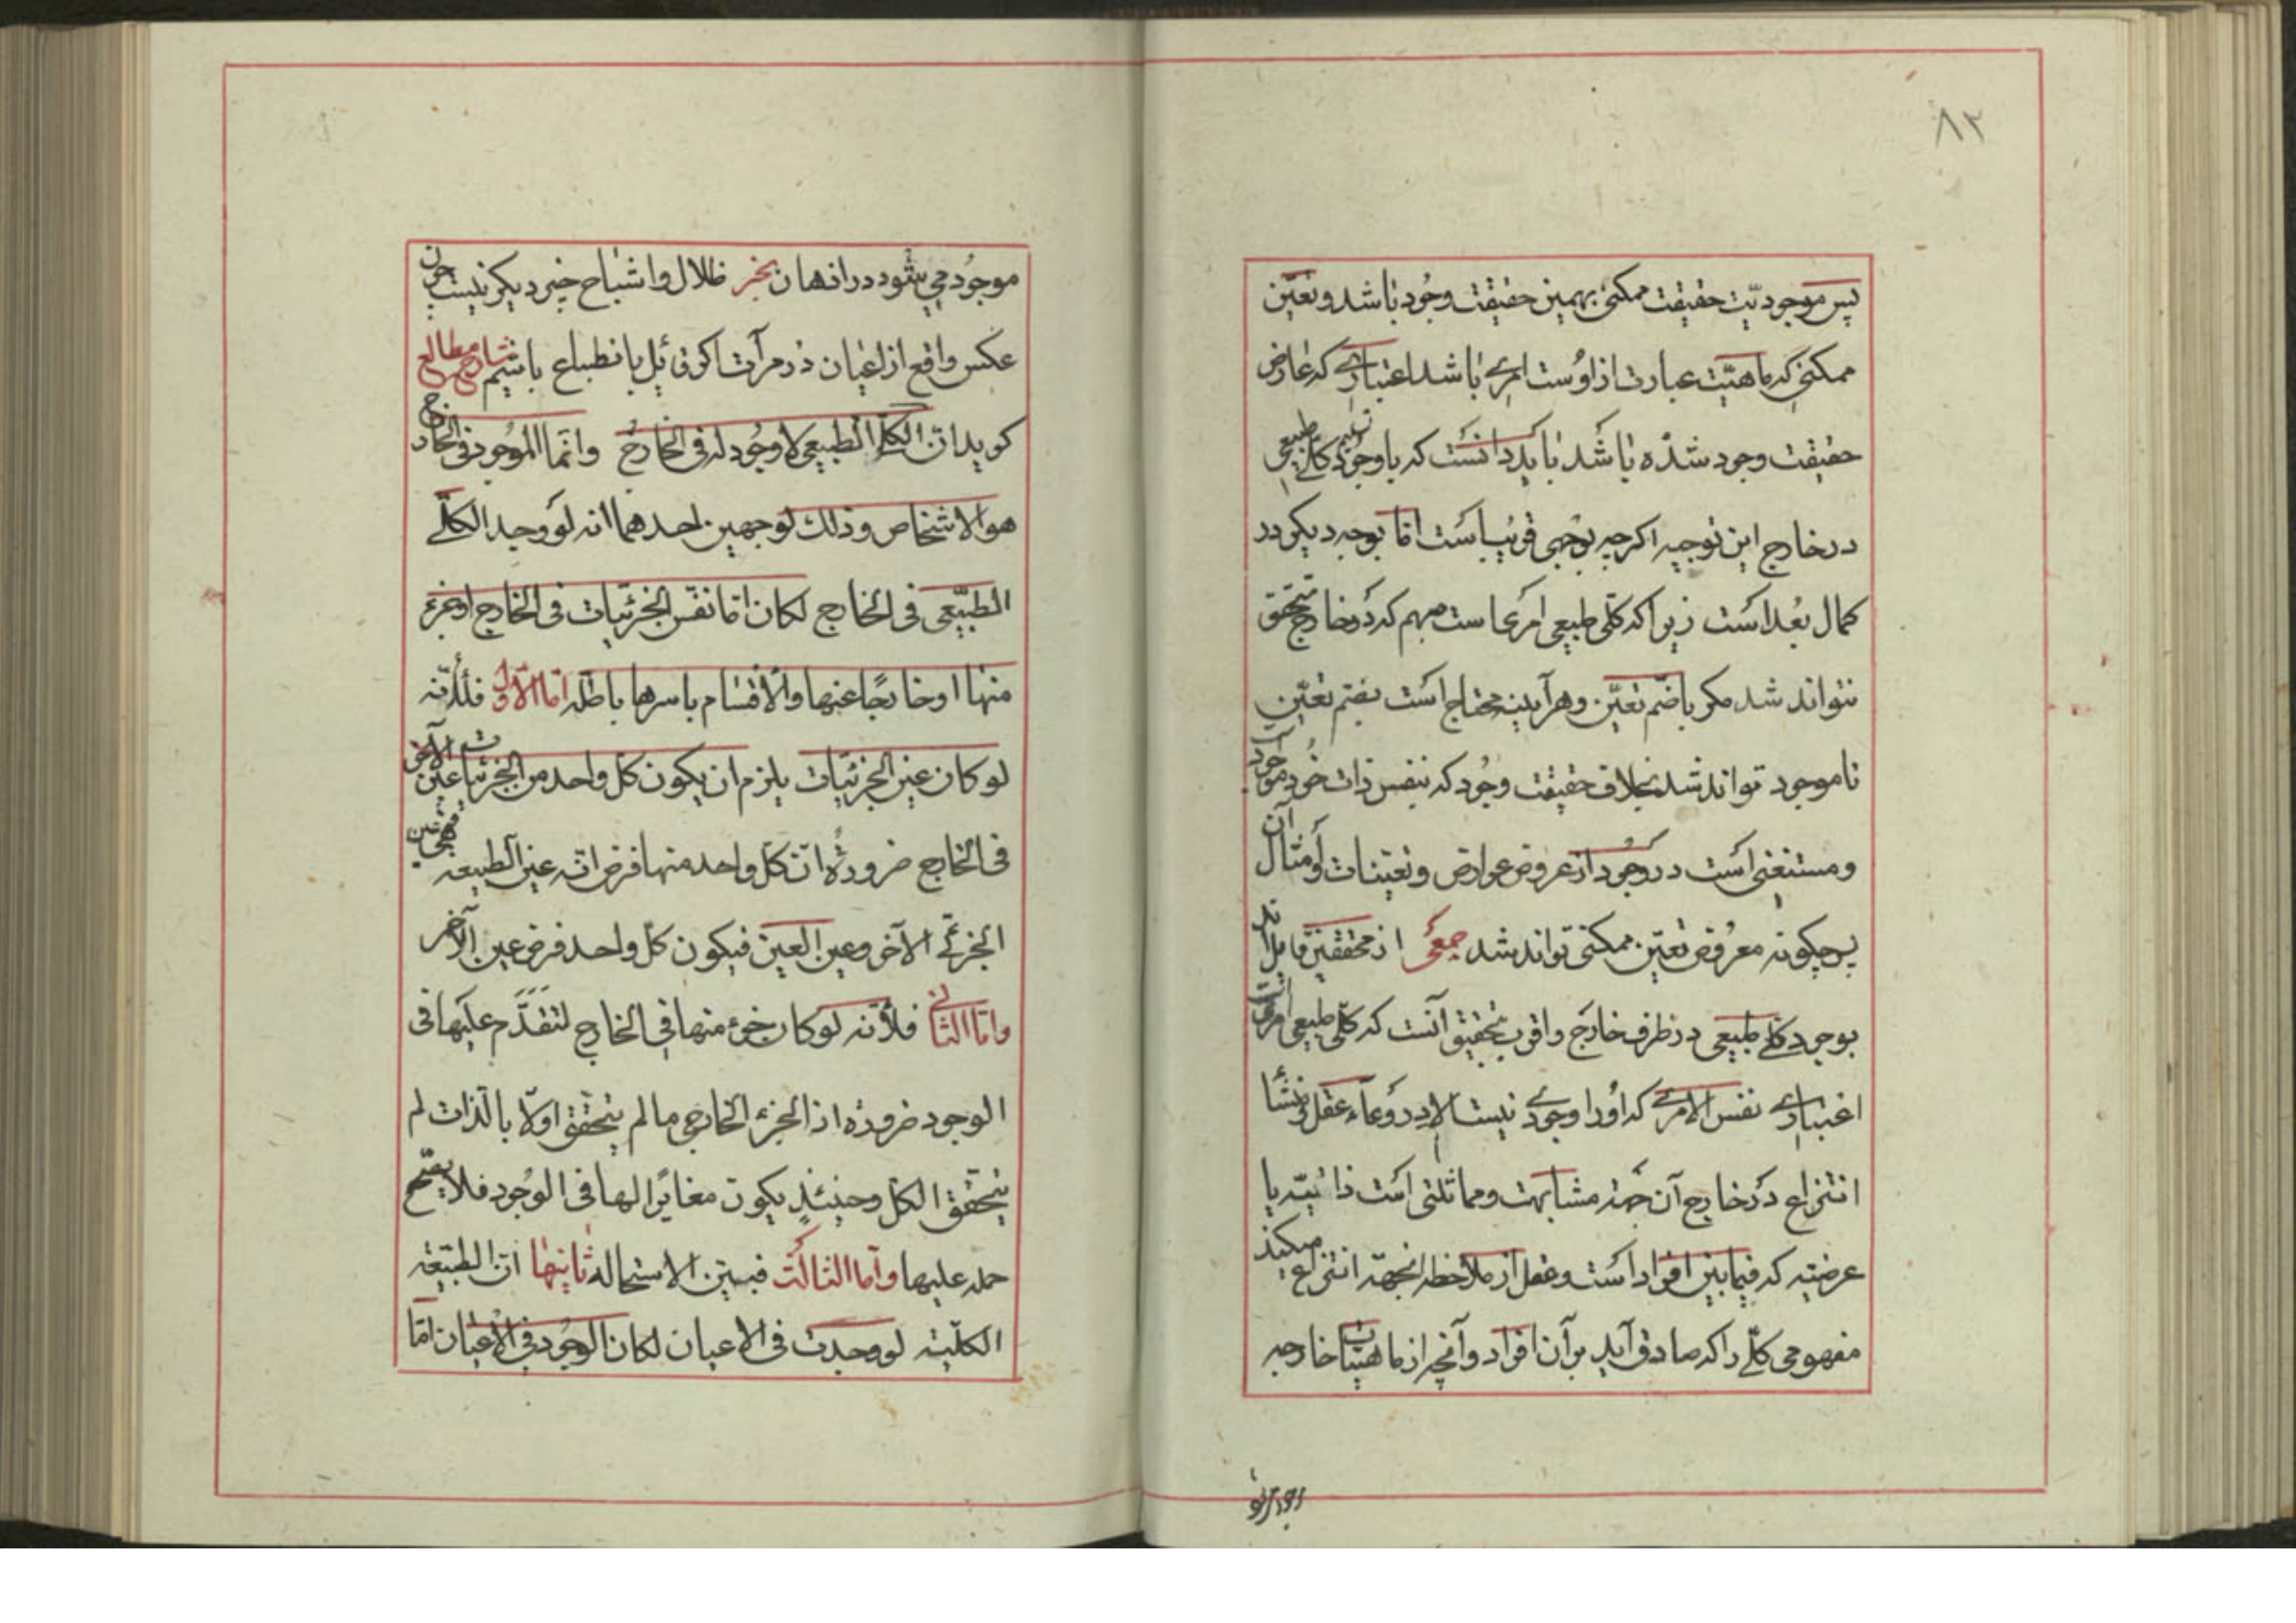 ٨٢
پس موجودیّت حقیقت ممکنی بهمین حقیقت وجُود باشد و تعیّن
ممکنی که ماهیّت عبارت از اوُست امری باشد اعتباری که عارض
حقیقت وجود شده باشد باید دانست که با وجود تسلیم کلّی طبیعی
در خارج این توجیه اکرچه بوجهی قریب است امّا بوجه دیکر در
کمال بُعد است زیرا که کلّی طبیعی امری است مبهم که در خارج متحقق
نتواند شد مکر باضّم تعیّن و هرآینه محتاج است بضم تعیّن
تا موجود تواند شد بخلاف حقیقت وجُود که بنفس ذات خُود موجود
و مستغنی است در وجُود از عروض عوارض و تعینات و امثال آن
پس چکونه معرُوض تعیّن ممکنی تواند شد جمعی از محققین قایل اند
بوجود کلّی طبیعی در ظرف خارج و اقرب بتحقیق آنست که کلّی طبیعی امری است
اعتباری نفس الامری که اوُرا وجودی نیست الا در وعاء عقل و منشأ
انتزاع در خارج آن جهته مشابهت و مماثلتی است ذاتیّه یا
عرضیّه که فیما بین افراد است و عقل از ملاحظه انجهة انتزاع میکند
مفهومی کلّی را که صادق آید بر آن افراد و آنچه از ماهیّات خارجیه
موجُود می شود در اذهان بخبر ظلال و اشباح چیز دیکر نیست چون
عکس واقع از اعیان در مرآت اکر قائل بانطباع باشیم شارح مطالع
کوید انّ الکلّ الطبیعی لا وجُود له فی الخارج و انّما الموُجود فی الخارج
هو الاشخاص و ذلک لوجهین احدهما انه لو وجد الکلّی
الطبیّعی فی الخارج لکان امّا نفس الجزئیّات فی الخارج او جزء
منها او خارجًا عنها والاقسام باسرها باطله امّا الاوّل فلأنّه
لو کان عین الجزئیّات یلزم ان یکون کلّ واحد من الجزئیات عین الآخر
فی الخارج ضرورة انّ کلّ واحد منها فرض انّه عین الطبیعه فهی عین
الجزئی الآخر و عین العین فیکون کلّ واحد فرض عین الآخر
و امّا الثانی فلأنه لو کان جزء منها فی الخارج لتقدّم علیها فی
الوجود ضرورة اذ الجزء الخارجی ما لم یتحقق اولاً بالذات لم
یتحقق الکلّ و حینئذٍ یکون مغایرًا لها فی الوجُود فلا یصحّ
حمله علیها و امّا الثالث فبیّن الاستحاله ثانیها انّ الطبیّعة
الکلّیّه لو وجدت فی الاعیان لکان الموجُود فی الاعیان امّا